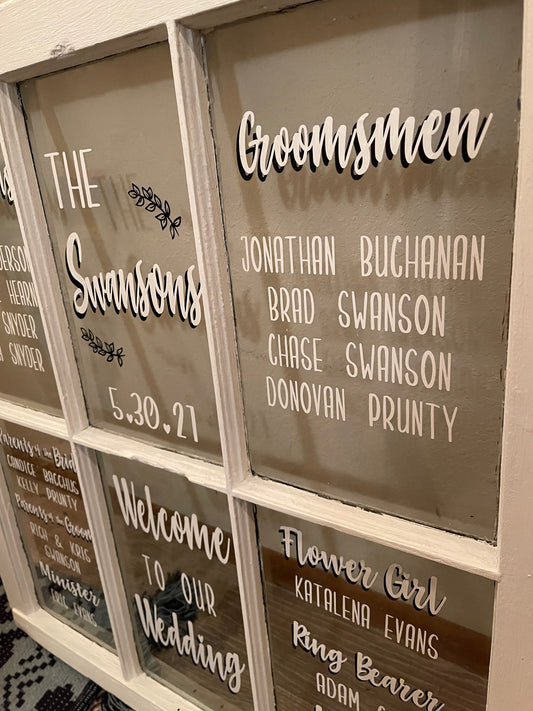 HEARN
SNYDER
SNYDER
THE
Swansons
5.30.21
Groomsmen
JONATHAN BUCHANAN
BRAD SWANSON
CHASE SWANSON
DONOVAN PRUNTY
Parents of the Bride
CANDICE BACCHUS
KELLY PRUNTY
Parents of the Groom
RICH & KRIS
SWANSON
Minister
ERIC EVANS
Welcome
TO OUR
Wedding
Flower Girl
KATALENA EVANS
Ring Bearer
ADAM